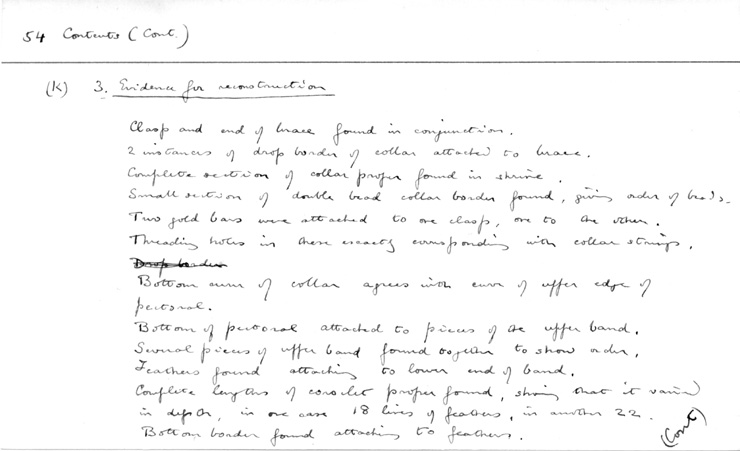 54 Contents (Cont.)
(K) 3. Evidence for reconstruction
Clasp and end of brace found in conjunction.
2 instances of drop border of collar attached to brace.
Complete section of collar proper found in shrine.
Small section of double bead collar border found, giving order of beads.
Two gold bars were attached to one clasp, one to the other.
Threading holes in these exactly corresponding with collar strings.
Drop border
Bottom curve of collar agrees with curve of upper edge of
pectoral.
Bottom of pectoral attached to pieces of the upper band.
Several pieces of upper band found together to show order.
Feathers found attaching to lower end of band.
Complete lengths of corselet proper found, showing that it varied
in depth, in one case 18 lines of feathers, in another 22.
Bottom border found attaching to feathers.
(Cont)